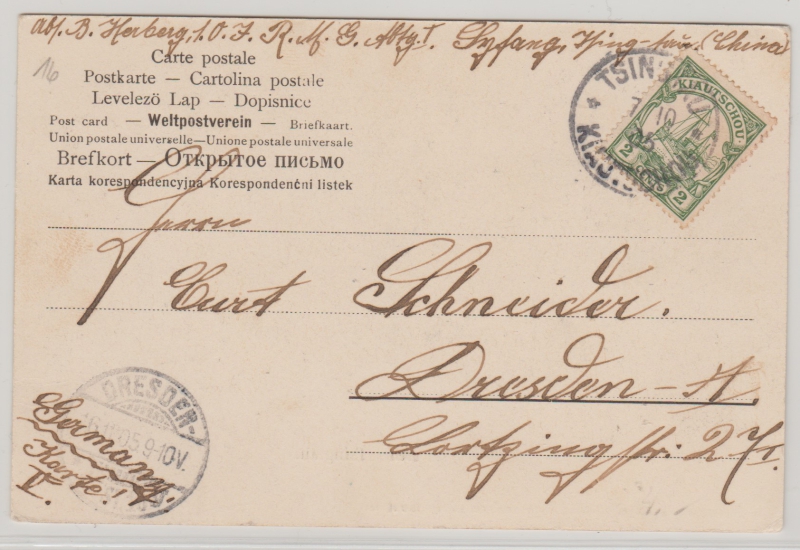 Abs. B. Herberg, 1. O. J. R. M. G. Abtg. I. Syfang, Tsing-tau. (China)
16
Carte postale
Postkarte — Cartolina postale
Levelező Lap — Dopisnice
Post card — Weltpostverein — Briefkaart.
Union postale universelle — Unione postale universale
Brefkort — Открытое письмо
Karta korespondencyjna Korespondenčni listek
TSINGTAU
KIAUTSCHOU
2 CENTS 2
Herrn
Curt Schneider.
Dresden-A.
Lortzingstr. 2
DRESDEN-
16.11.05 9-10V.
Germany.
Karte!
II.